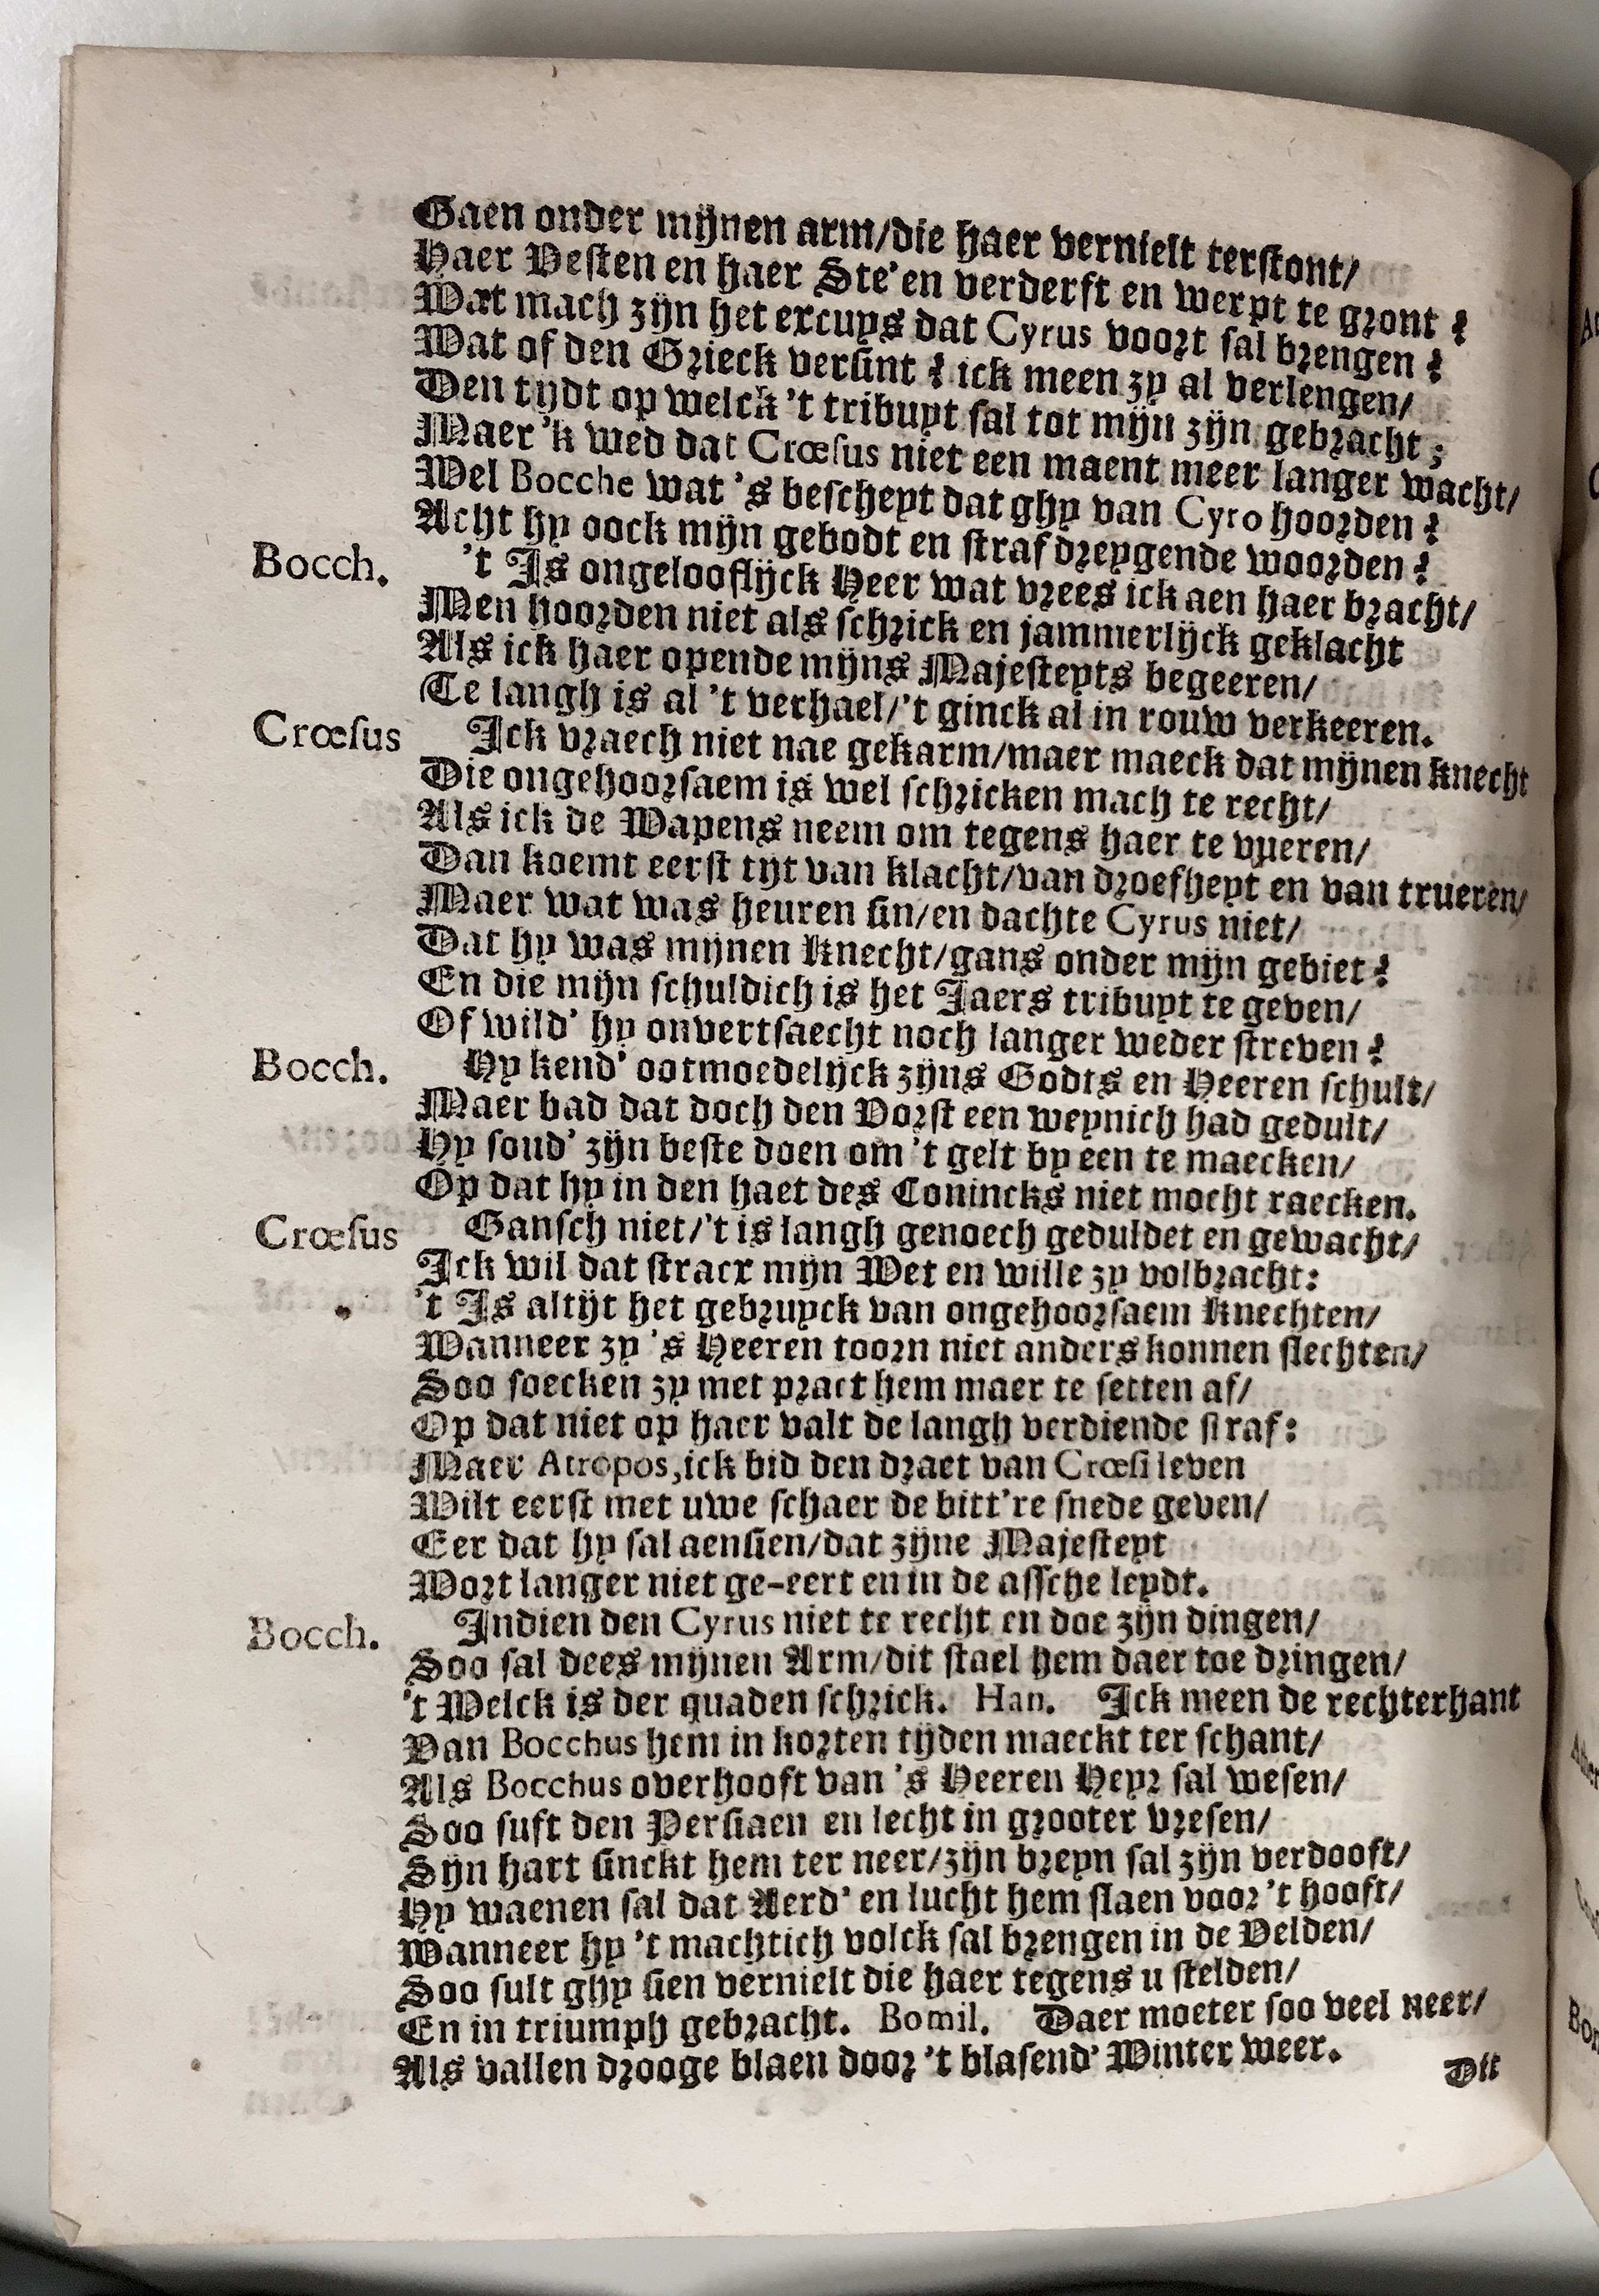 Gaen onder mijnen arm/die haer vernielt terstont/
Haer Vesten en haer Ste'en verderft en werpt te gront?
Wat mach zijn het excuys dat Cyrus voort sal brengen?
Wat of den Grieck versint? ick meen zy al verlengen/
Den tijdt op welck 't tribuyt sal tot mijn zijn gebracht;
Maer 'k wed dat Crœsus niet een maent meer langer wacht/
Wel Bocche wat 's bescheyt dat ghy van Cyro hoorden?
Acht hy oock mijn gebodt en straf dreygende woorden?
Bocch. 't Is ongelooflijck Heer wat vrees ick aen haer bracht/
Men hoorden niet als schrick en jammerlijck geklacht
Als ick haer opende mijns Majesteyts begeeren/
Te langh is al 't verhael/'t ginck al in rouw verkeeren.
Crœsus Ick vraech niet nae gekarm/maer maeck dat mijnen knecht
Die ongehoorsaem is wel schricken mach te recht/
Als ick de Wapens neem om tegens haer te vyeren/
Dan koemt eerst tijt van klacht/van droefheyt en van trueren/
Maer wat was heuren sin/en dachte Cyrus niet/
Dat hy was mijnen Knecht/gans onder mijn gebiet?
En die mijn schuldich is het Jaers tribuyt te geven/
Of wild' hy onvertsaecht noch langer weder streven?
Bocch. Hy kend' ootmoedelijck zijns Godts en Heeren schult/
Maer bad dat doch den Vorst een weynich had gedult/
Hy soud' zijn beste doen om 't gelt by een te maecken/
Op dat hy in den haet des Conincks niet mocht raecken.
Crœsus Gansch niet/'t is langh genoech geduldet en gewacht/
Ick wil dat stracx mijn Wet en wille zy volbracht:
't Is altijt het gebruyck van ongehoorsaem Knechten/
Wanneer zy 's Heeren toorn niet anders konnen slechten/
Soo soecken zy met pract hem maer te setten af/
Op dat niet op haer valt de langh verdiende straf:
Maer Atropos, ick bid den draet van Crœsi leven
Wilt eerst met uwe schaer de bitt're snede geven/
Eer dat hy sal aensien/dat zijne Majesteyt
Wort langer niet ge-eert en in de assche leydt.
Bocch. Indien den Cyrus niet te recht en doe zijn dingen/
Soo sal dees mijnen Arm/dit stael hem daer toe dringen/
't Welck is der quaden schrick. Han. Ick meen de rechterhant
Van Bocchus hem in korten tijden maeckt ter schant/
Als Bocchus overhooft van 's Heeren Heyr sal wesen/
Soo suft den Persiaen en lecht in grooter vresen/
Sijn hart sinckt hem ter neer/zijn breyn sal zijn verdooft/
Hy waenen sal dat Aerd' en lucht hem slaen voor 't hooft/
Wanneer hy 't machtich volck sal brengen in de Velden/
Soo sult ghy sien vernielt die haer tegens u stelden/
En in triumph gebracht. Bomil. Daer moeter soo veel neer/
Als vallen drooge blaen door 't blasend' Winter weer.
Dit